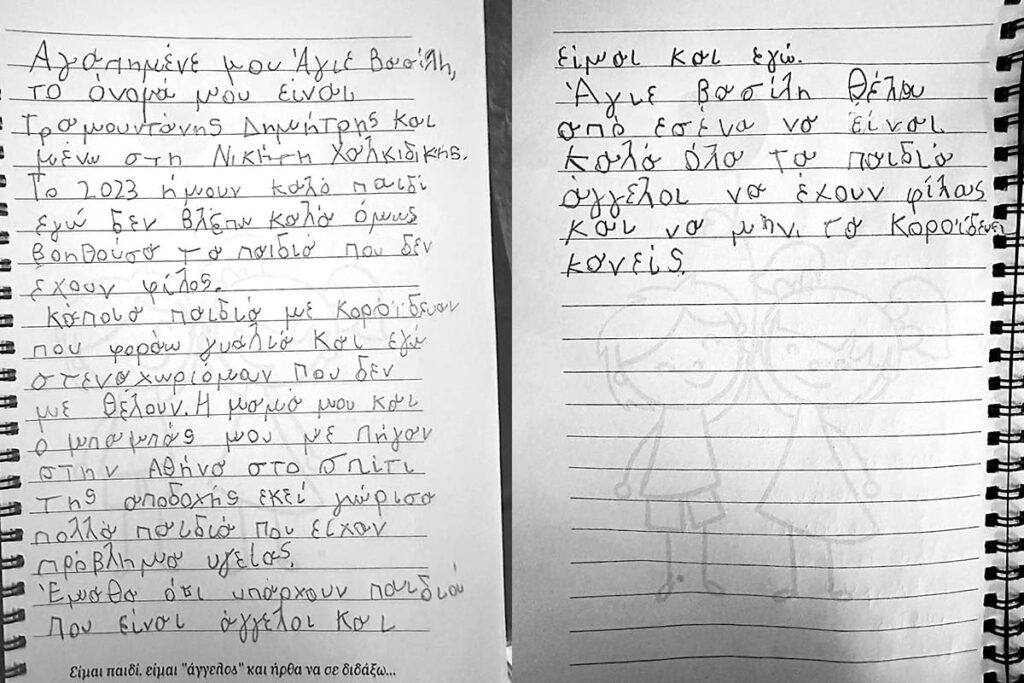 Αγαπημένε μου Άγιε Βασίλη,
το όνομά μου είναι
Τραμουντάνης Δημήτρης και
μένω στη Νικήτη Χαλκιδικης.
Το 2023 ήμουν καλό παιδί
εγώ δεν βλέπω καλά όμως
βοηθούσα τα παιδιά που δεν
έχουν φίλος.
κάποια παιδιά με κοροϊδευαν
που φοράω γυαλιά και εγώ
στεναχωριόμαν που δεν
με θέλουν. Η μαμά μου και
ο μπαμπάς μου με πήγαν
στην Αθήνα στο σπίτι
της αποδοχής εκεί γνώρισα
πολλά παιδιά που είχαν
πρόβλημα υγείας.
Έμαθα ότι υπάρχουν παιδιά
που είναι άγγελοι και
Είμαι παιδί, είμαι "άγγελος" και ήρθα να σε διδάξω...
είμαι και εγώ.
Άγιε Βασίλη θέλω
από εσένα να είναι
καλά όλα τα παιδιά
άγγελοι να έχουν φίλους
και να μην τα κοροϊδευει
κανείς.